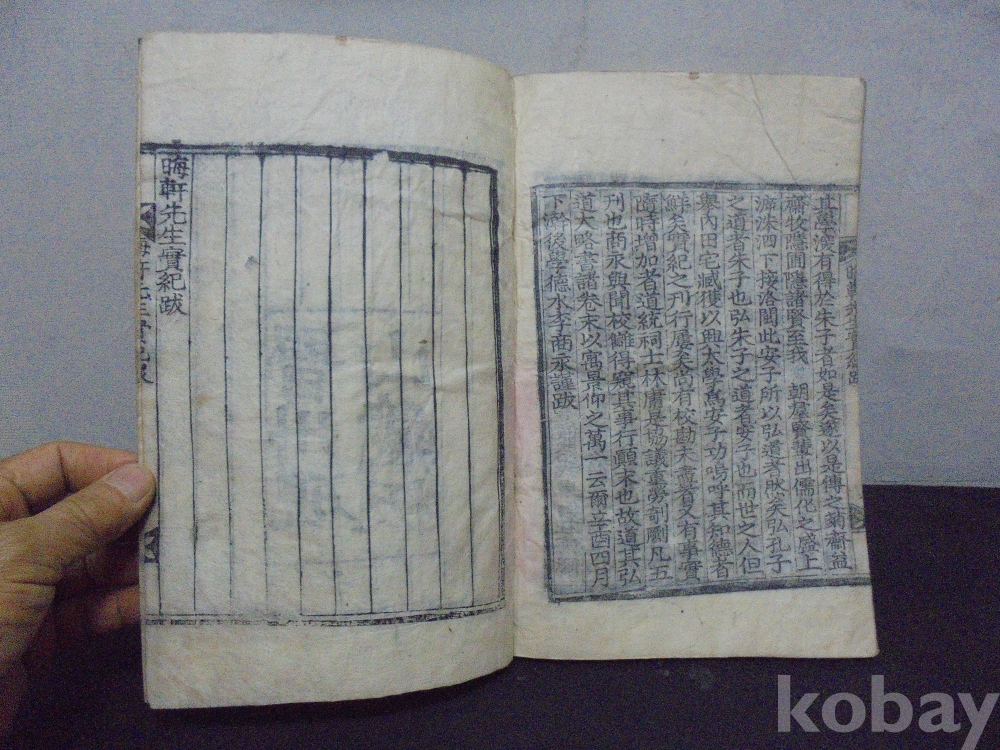 學深有得於朱子者如是矣遂以是傳之菊齋益
齋牧隱圃隱諸賢至我 朝羣賢輩出儒化之盛上
泝洙泗下接洛閩此安子所以弘道者然矣弘孔子
之道者朱子也弘朱子之道者安子也而世之人但
擧內田宅臧獲以興太學爲安子功嗚呼其知德者
鮮矣實紀之刊行屢矣尚有校勘未盡者又有事實
隨時增加者道統祠士林庸是協議重剞劂凡五
刊也商永與聞校讎得窺其事行顚末也故道其弘
道大略書諸卷末以寓景仰之萬一云爾辛酉四月
下澣後學德水李商永謹跋
晦軒先生實紀跋
kobay